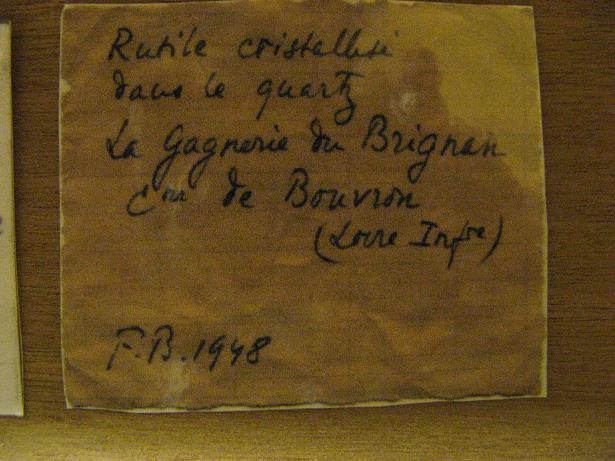 Rutile cristallisé
dans le quartz
La Gagnerie du Brignan
Cne de Bouvron
(Loire Infre)
F.B. 1948